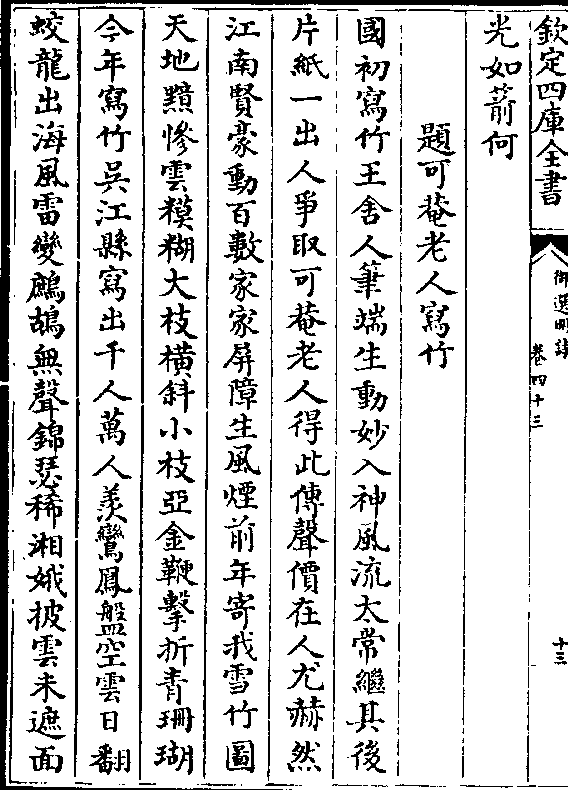 欽定四庫全書
御選明詩
卷四十三
十三
光如箭何
題可菴老人寫竹
國初寫竹王舍人筆端生動妙入神風流太常繼其後
片紙一出人爭取可菴老人得此傳聲價在人尤赫然
江南賢豪動百數家家屏障生風煙前年寄我雪竹圖
天地黯慘雲糢糊大枝橫斜小枝亞金鞭擊折青珊瑚
今年寫竹吳江縣寫出千人萬人羨鸞鳳盤空雲日翻
蛟龍出海風雷變鷓鴣無聲錦瑟稀湘娥披雲未遮面